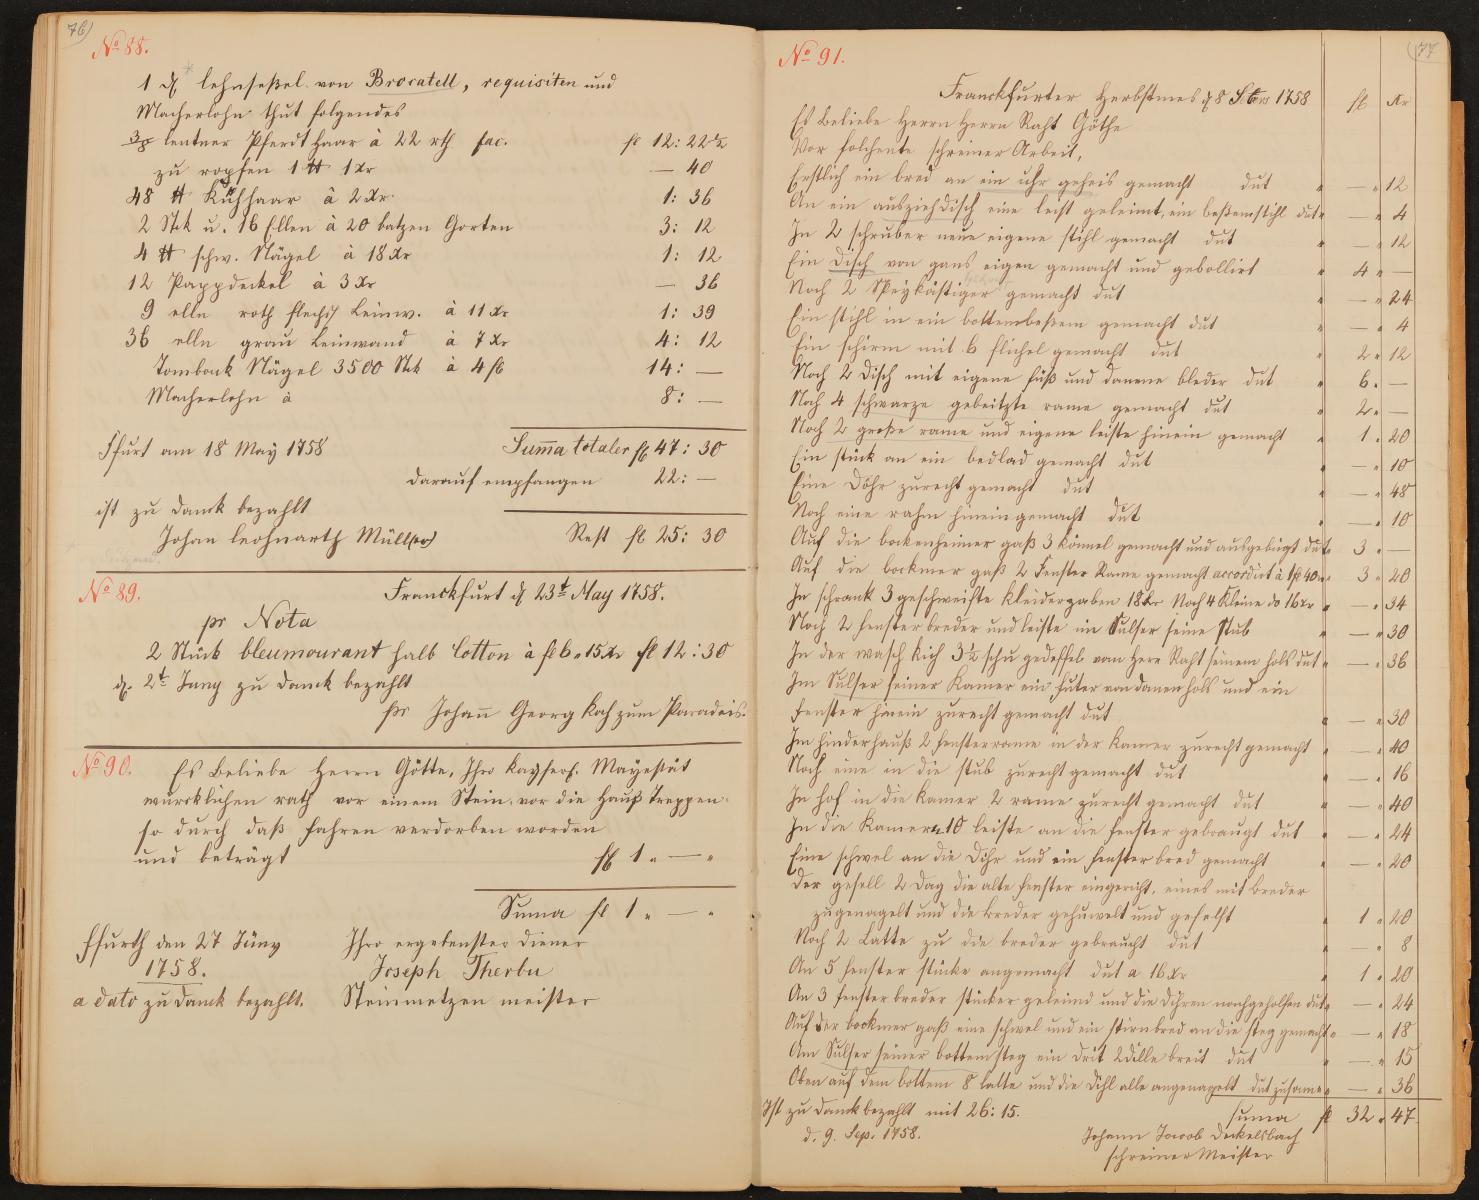 76)
No 88.
1 d. lehnseßel von Brocatell, requisiten und
Macherlohn thut folgendes
lentner Pferdt haar à 22 rth fac. fl 12: 22½
zu ropfen 1 ℔ 1 Xr — 40
48 ℔ Kühhaar à 2 Xr 1: 36
2 Stck u. 16 Ellen à 20 batzen Gorten 3: 12
4 ℔ schw. Nägel à 18 Xr 1: 12
12 Pappdeckel à 3 Xr — 36
9 elln roth flechß Leinw. à 11 Xr 1: 39
36 elln grau Leinwand à 7 Xr 4: 12
Tomback Nägel 3500 Stck à 4 fl 14: —
Macherlohn à 8: —
ffurt am 18 May 1758 Suma totaler fl 47: 30
darauf empfangen 22: —
ist zu danck bezahlt
Johan leohnarth Müll(er) Rest fl 25: 30
No 89. Franckfurt d 23t May 1758.
pr Nota
2 Stück bleumourant halb Cotton à fl 6 " 15 Xr fl 12: 30
d. 2t Juny zu danck bezahlt
pr Johann Georg Koch zum Paradeis.
No 90. Es Beliebe Herrn Götte, Ihro Kayserl. Mayestät
würcklichen rath vor einem Stein vor die Hauß Treppen
so durch daß fahren verdorben worden
und beträgt fl 1 " — "
Suma fl 1 " — "
ffurth den 27 Jüny Ihro ergebenster diener
1758. Joseph Therbu
a dato zu danck bezahlt. Steinmetzen meister
(77
No 91.
Franckfurter Herbstmes d 8 Stbrs 1758 fl Xr
Es Beliebe Herrn Herrn Raht Göthe
Vor folchente schreiner Arbeit,
Erstlich ein bred an ein uhr geheis gemacht dut " — " 12
An ein ausziehdisch eine leist geleimt, ein beßemstihl dut " — " 4
In 2 schruber neue eigene stihl gemacht dut " — " 12
Ein disch von gans eigen gemacht und gebollirt " 4 " —
Noch 2 Speykästiger gemacht dut " — " 24
Ein stihl in ein bottembeßem gemacht dut " — " 4
Ein schirm mit 6 flichel gemacht dut " 2 " 12
Noch 2 disch mit eigene füß und danene bleder dut " 6 " —
Noch 4 schwarze gebeitzte rame gemacht dut " 2 " —
Noch 2 große rame und eigene leiste hinein gemacht " 1 " 20
Ein stück an ein bedlad gemacht dut " — " 10
Eine Döhr zurecht gemacht dut " — " 48
Noch eine rahm hinein gemacht dut " — " 10
Auf die bockenheimer gaß 3 könnel gemacht und ausgebügt dut " 3 " —
Auf die bockmer gaß 2 Fenster Rame gemacht accordirt à 1 fl 40 " 3 " 20
In schrank 3 geschweifte kleidergaben 18 Xr Noch 4 Kleine do 16 Xr " — " 34
Noch 2 fensterbreder und leiste im Sulser seine stub " — " 30
In der wasch kich 3½ schu gedeffel von Herr Raht seinem hols dut " — " 36
Im Sulser seiner Kamer ein futer von danen hols und ein
Fenster hinein zurecht gemacht dut " — " 30
Im hinderhauß 2 fensterrame in der Kamer zurecht gemacht " — " 40
Noch eine in die stub zurecht gemacht dut " — " 16
In hof in die Kamer 2 rame zurecht gemacht dut " — " 40
In die Kamern 10 leiste an die fenster gebraugt dut " — " 24
Eine schwel an die Döhr und ein fensterbred gemacht " — " 20
der gesell 2 dag die alte fenster eingericht, eines mit breder
zugenagelt und die breder gehuwelt und gehelft " 1 " 20
Noch 2 Latte zu die breder gebraucht dut " — " 8
An 5 fenster stücke angemacht dut a 16 Xr " 1 " 20
An 3 fensterbreder stücker geleimd und die dihren nachgeholfen dut " — " 24
Auf der bockmer gaß eine schwel und ein stirnbred an die steg gemacht " — " 18
Am Sulser seiner bottemsteg ein drit 2 dille breit dut " — " 15
Oben auf dem bottem 8 latte und die Dihl alle angenagelt dut zusame " — " 36
Ist zu danck bezahlt mit 26: 15. suma fl 32 " 47
d. 9. Sep. 1758. Johann Jacob Deckelsbach
schreiner Meister